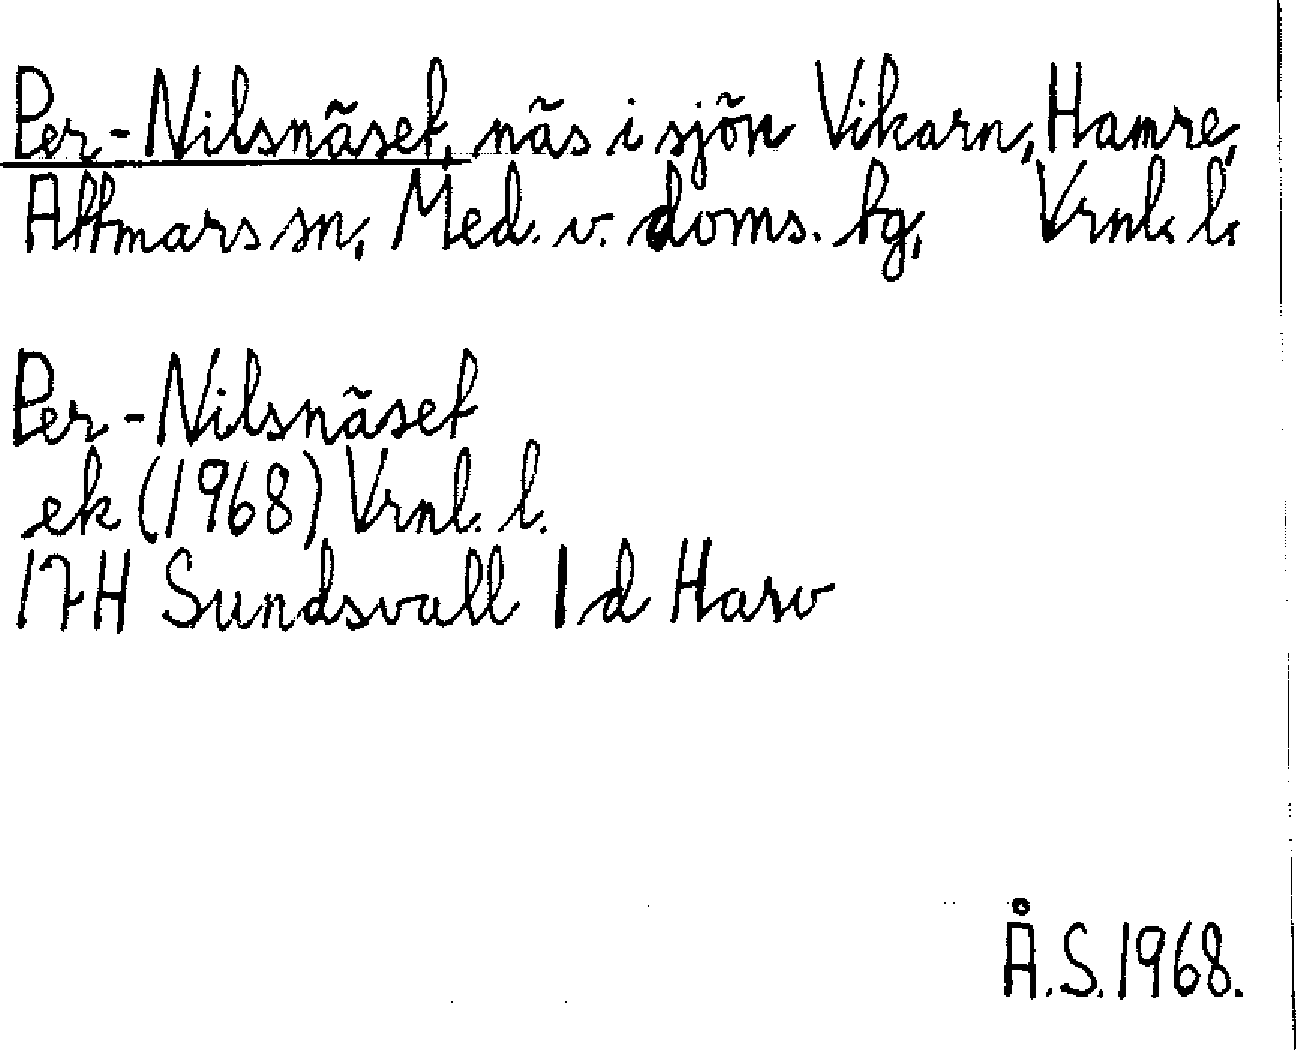 Per-Nilsnäset, näs i sjön Vikarn, Hamre,
Attmars sn, Med. v. doms. tg, Vrnl. l.
Per-Nilsnäset
ek (1968) Vrnl. l.
17H Sundsvall 1d Harv
Å.S. 1968.